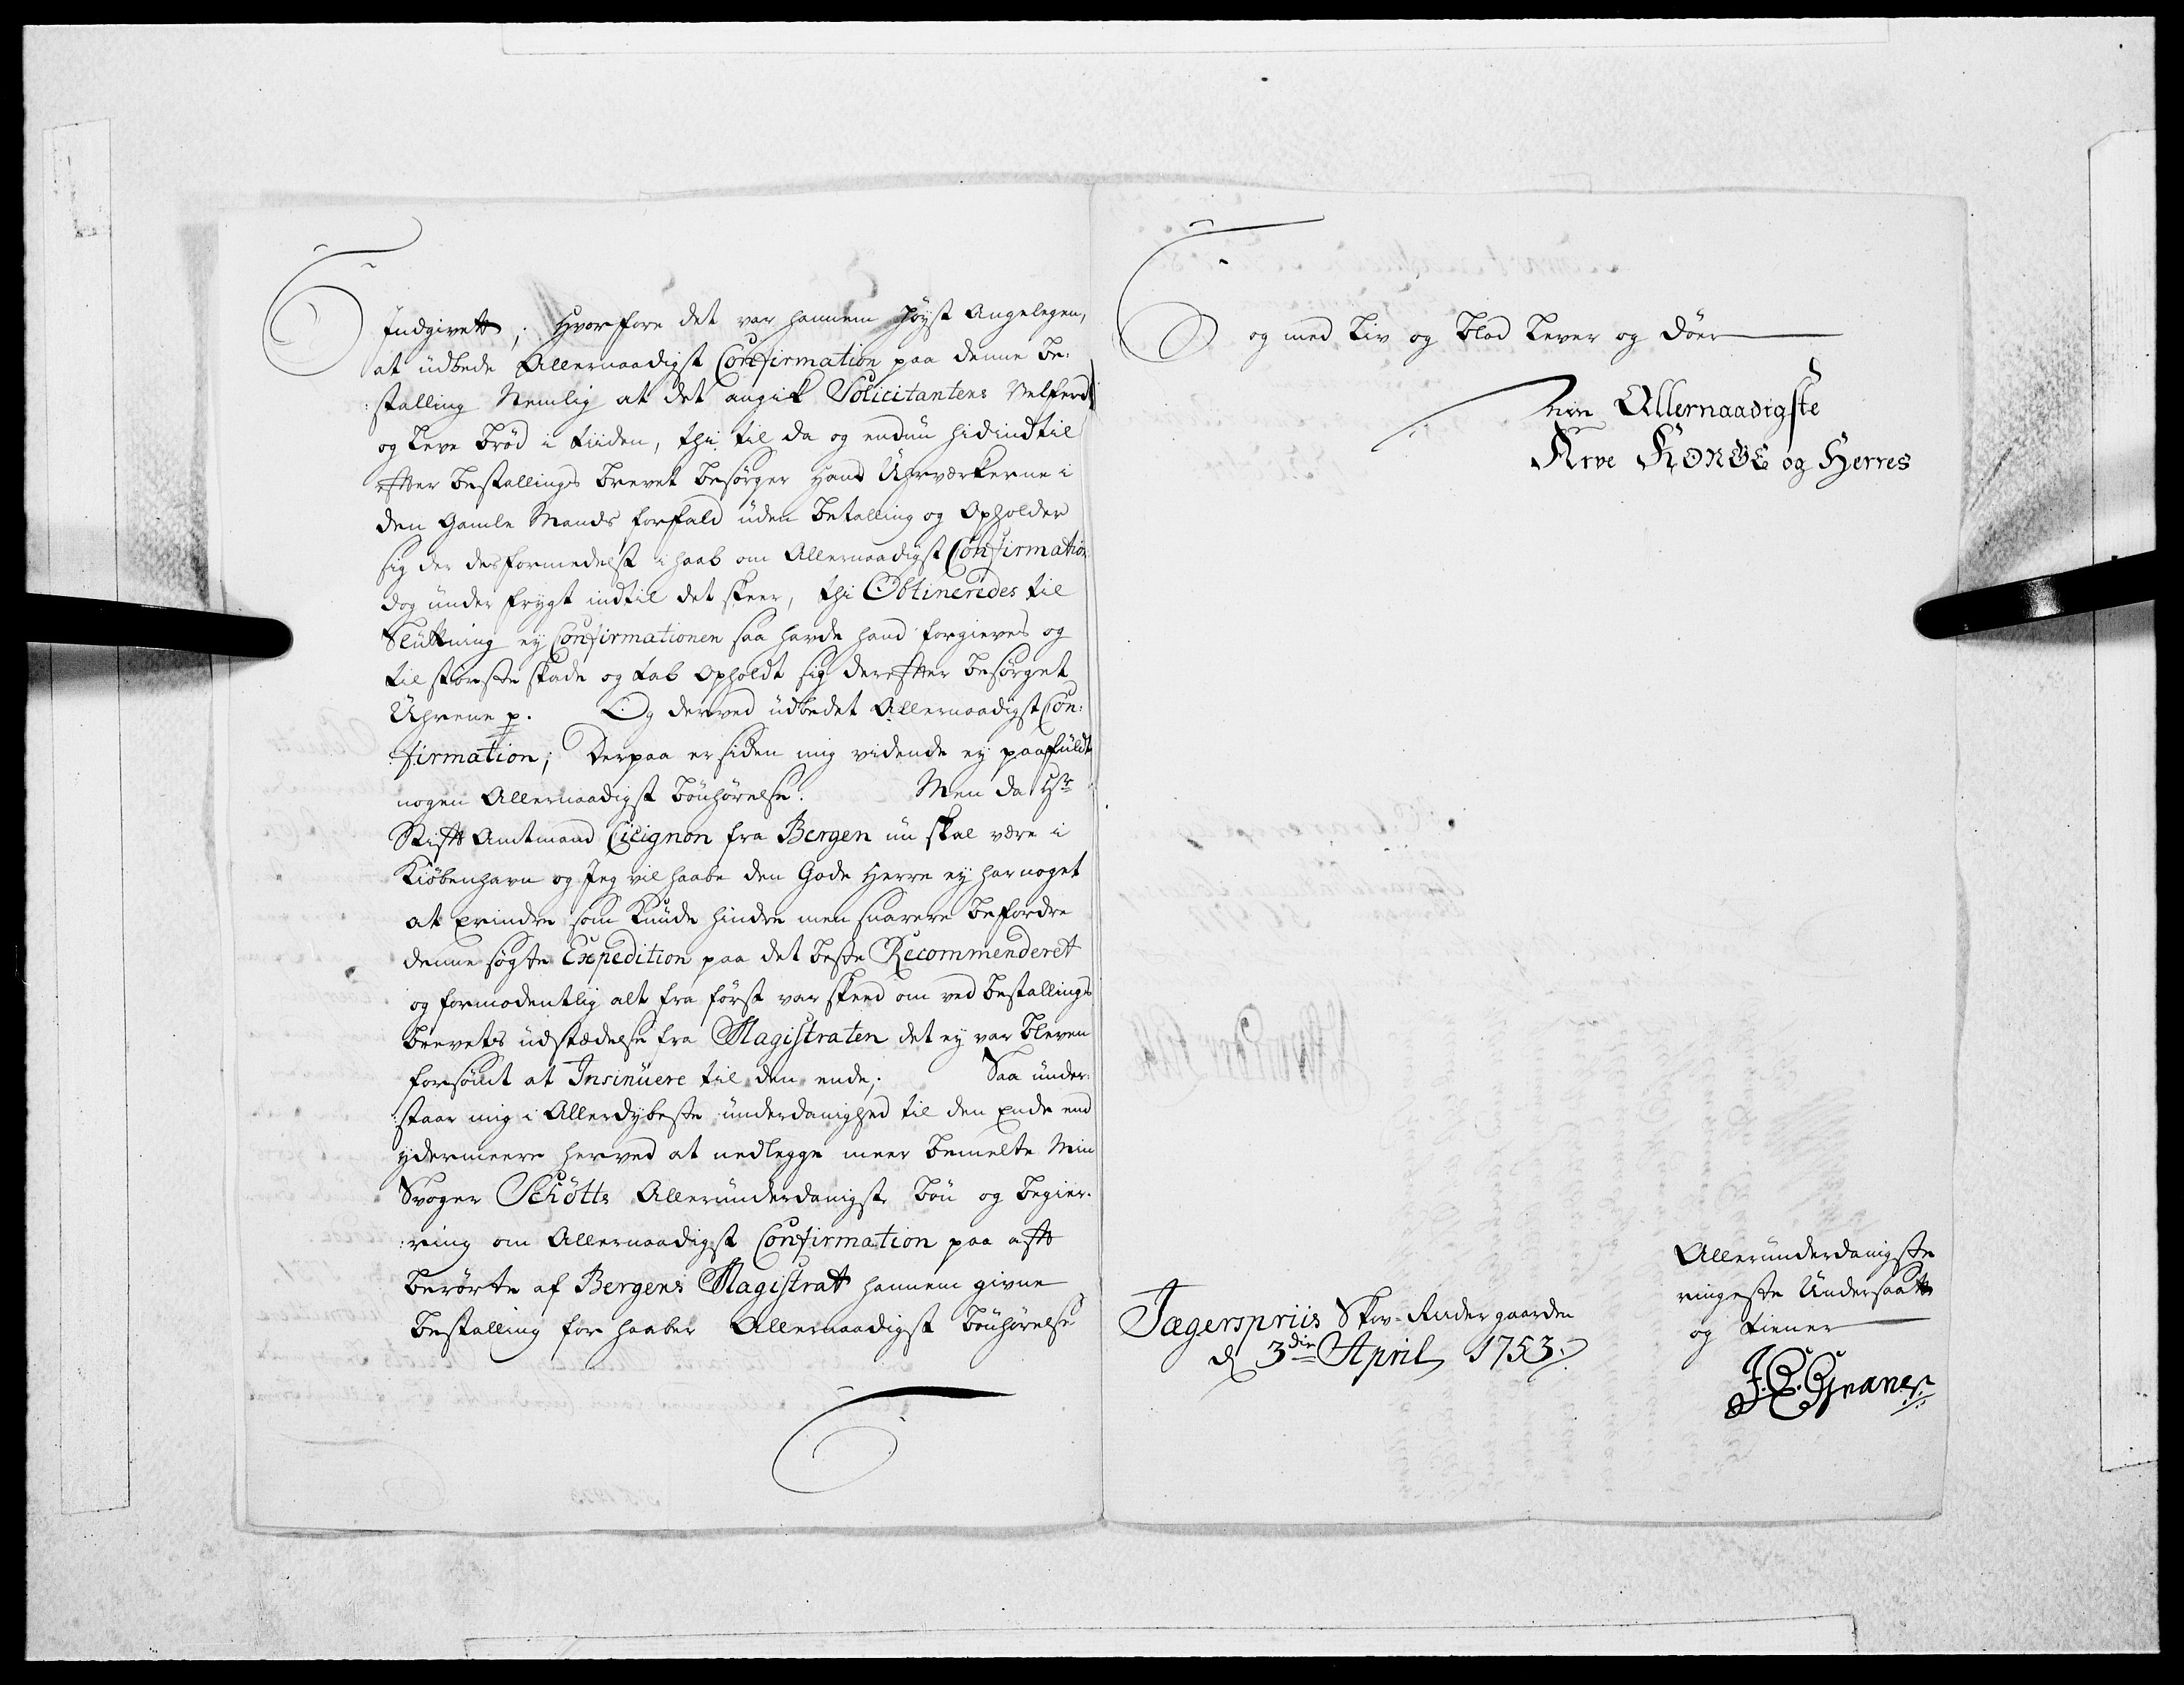 Indgivett; Hvorfore det var hannem høyst Angelegen,
at üdbede Allernaadigst Confirmation paa denne be-
stalling Nemlig at det angik Solicitantens Velferd
og Leve brød i tiiden, thi til da og endnü hidindtil
efter bestallings brevet besørger hand Uhrværkerne i
den Gamle Mands forfald üden betalling og Opholder
sig der desformedelst i haab om Allernaadigst Confirmation
dog ünder frygt indtil det skeer, thi Obtineredes til
Slüttning ey Confirmationen saa havde hand forgieves og
til største skade og tab opholdt sig derefter besørget
Uhrene p. Og derved üdbedet Allernaadigst Con-
firmation; Derpaa er siden mig vidende ey paafüldt
nogen Allernaadigst bønhørelse. Men da Hr
Stifft Amtmand Cicignon fra Bergen nü skal være i
Kiøbenhavn og Jeg vil haabe den Gode Herre ey har noget
at erindre som kunde hindre men snarere befordre
denne søgte Expedition paa det beste Recommenderet
og formodentlig alt fra først var skeed om ved bestallings
brevets üdstædelse fra Magistraten det ey var bleven
forsømt at Insinüere til den ende; Saa ünder-
staar mig i Allerdybeste ünderdanighed til den Ende end
ydermeere herved at nedlegge meer bemelte Min
Svoger Schøtts Alleründerdanigste bøn og begier-
ring om Allernaadigst Confirmation paa afft
berørte af Bergens Magistrat hannem givne
bestalling forhaaber Allernaadigst bønhørelse
og med Liv og blod Lever og døer
Min Allernaadigste
Arve Konges og Herres
Alleründerdanigste
ringeste Undersaatt
og tiener
Jægerspriis Skov-Ridergaarden
d 3die April 1753.